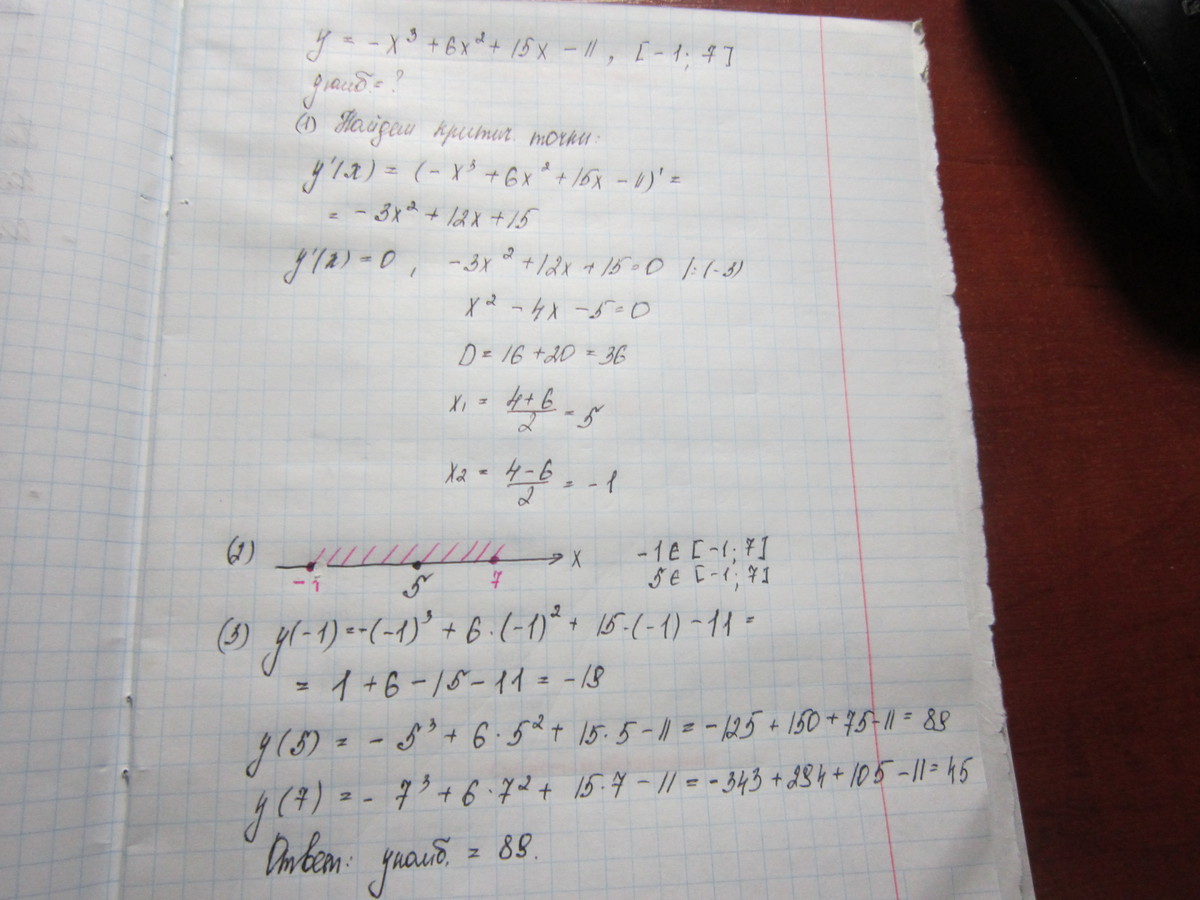 y = -x³ + 6x² + 15x - 11, [-1; 7]
yнаиб. = ?
(1) Найдем критич. точки:
y'(x) = (-x³ + 6x² + 15x - 11)' =
= -3x² + 12x + 15
y'(x) = 0, -3x² + 12x + 15 = 0 |:(-3)
x² - 4x - 5 = 0
D = 16 + 20 = 36
x₁ = (4+6)/2 = 5
x₂ = (4-6)/2 = -1
(2) -1 5 7 x -1 ∈ [-1; 7]
5 ∈ [-1; 7]
(3) y(-1) = -(-1)³ + 6·(-1)² + 15·(-1) - 11 =
= 1 + 6 - 15 - 11 = -19
y(5) = -5³ + 6·5² + 15·5 - 11 = -125 + 150 + 75 - 11 = 89
y(7) = -7³ + 6·7² + 15·7 - 11 = -343 + 294 + 105 - 11 = 45
Ответ: yнаиб. = 89.